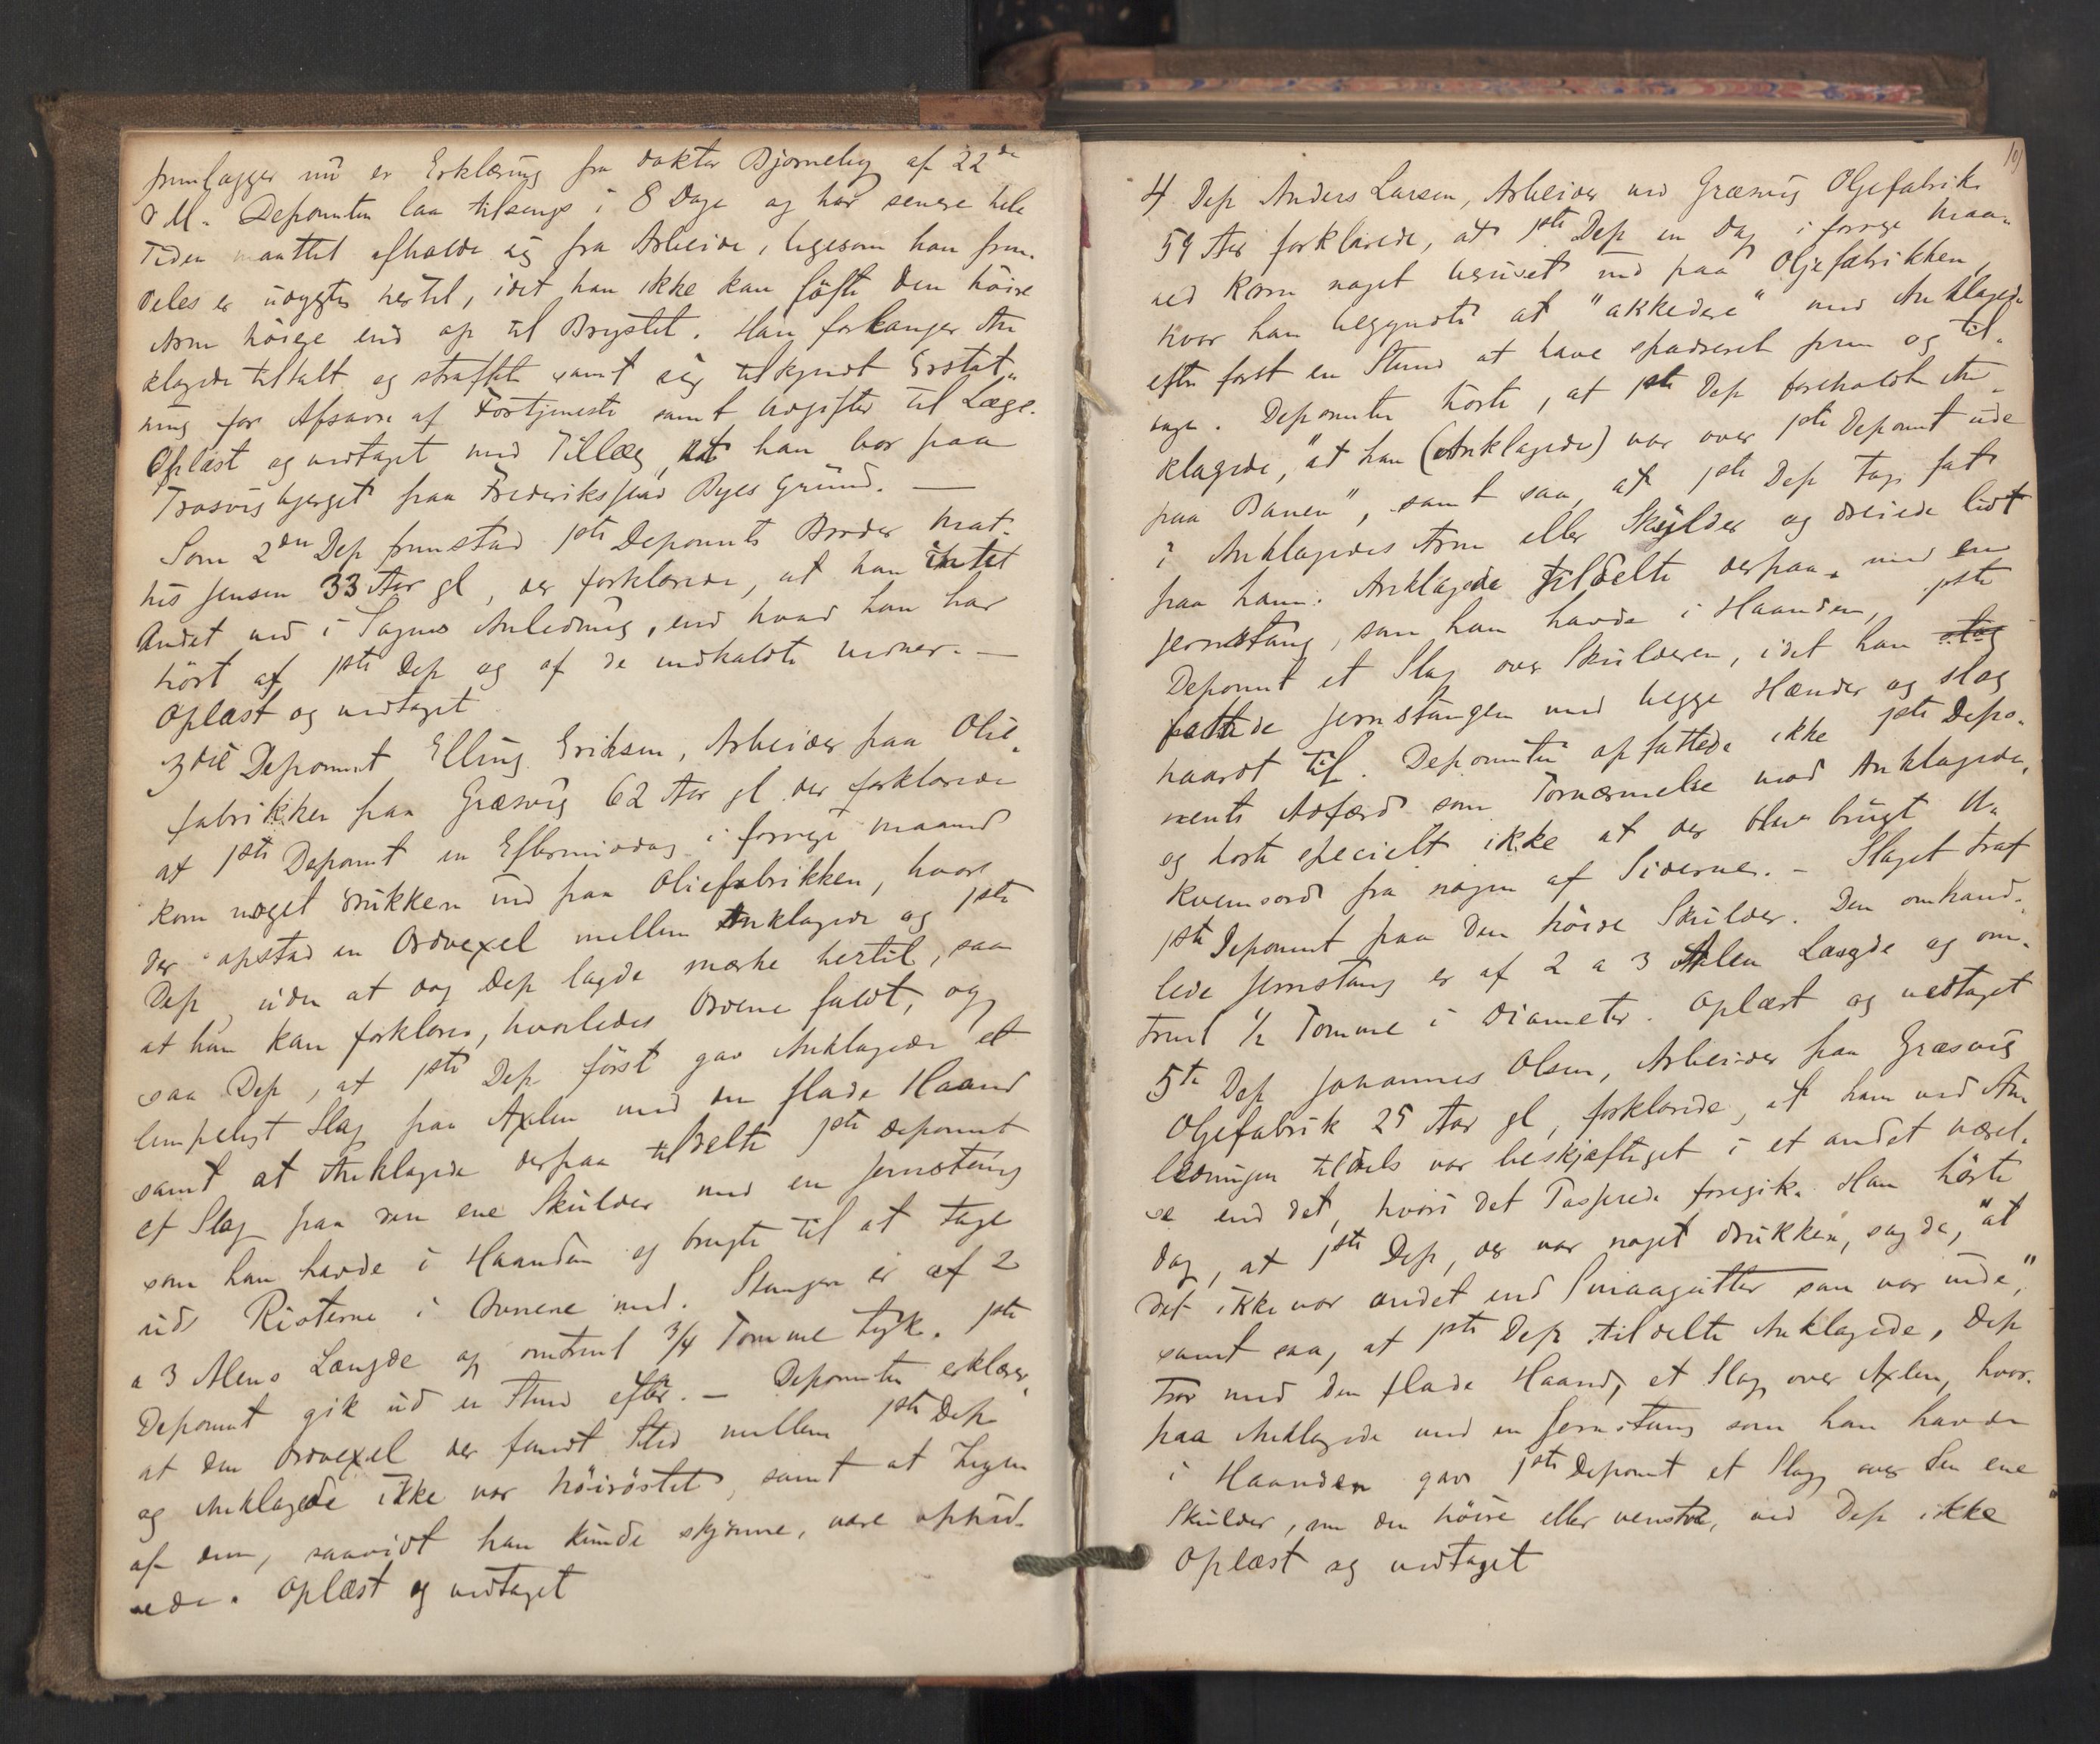 fremlægger nu en Erklæring fra doktor Bjørneby af 22de
d M. Deponenten laa tilsengs i 8 Dage og har senere hele
Tiden maattet afholde sig fra Arbeide, ligesom han frem-
deles er udygtig hertil, idet han ikke kan løfte den høire
Arm høiere end op til Brystet. Han forlanger An-
klagede tiltalt og straffet samt sig tilkjendt Erstat-
ning for Afsavn af Fortjeneste samt Udgifter til Læge.
Oplæst og vedtaget med Tillæg, at han bor paa
Trosvigbjerget paa Frederikstad Byes Grund. —
Som 2den Dep fremstod 1ste Deponents Broder Mat-
his Jensen 33 Aar gl, der forklarede, at han intet
Andet ved i Sagens Anledning, end hvad han har
hørt af 1ste Dep og af de indkaldte Vidner. —
Oplæst og vedtaget
3die Deponent Elling Eriksen, Arbeider paa Olie-
fabrikken paa Græsvig 62 Aar gl der forklarede
at 1ste Deponent en Eftermiddag i forrige Maaned
kom noget drukken ind paa Oliefabrikken, hvor
der opstod en Ordvexel mellem Anklagede og 1ste
Dep, uden at dog Dep lagde mærke hertil, saa
at han kan forklare, hvorledes Ordene faldt, og
saa Dep, at 1ste Dep først gav Anklagede et
lempeligt Slag paa Axlen med den flade Haand
samt at Anklagede derpaa tildelte 1ste deponent
et Slag paa den ene Skulder med en Jernstang
som han havde i Haanden og brugte til at tage
ud Risterne i Ovnene med. Stangen er af 2
a 3 Alens Længde og omtrent 3/4 Tomme tyk. 1ste
Deponent gik ud en Stund efter. — Deponenten erklærer,
at den Ordvexel der fandt Sted mellem 1ste Dep
og Anklagede ikke var høirøstet, samt at Ingen
af dem, saavidt han kunde skjønne, vare ophid-
sede. Oplæst og vedtaget
4 Dep Anders Larsen, Arbeider ved Græsvig Oljefabrik
59 Aar forklarede, at 1ste Dep en Dag i forrige Maa-
ned kom noget beruset ind paa Oljefabrikken,
hvor han begyndte at "akkedere" med Anklagede
efter først en Stund at have spadseret frem og til-
bage. Deponenten hørte, at 1ste Dep foreholdt An-
klagede, "at han (Anklagede) var over 1ste Deponent ude
paa Banen", samt saa, at 1ste Dep tog fat
i Anklagedes Arm eller Skulder og dreiede lidt
paa ham. Anklagede tildelte derpaa med en
Jernstang, som han havde i Haanden, 1ste
Deponent et Slag over Skulderen, idet han slog
fattede Jernstangen med begge Hænder og slog
haardt til. Deponenten opfattede ikke 1ste Depo-
nents Adfærd som Fornærmelse mod Anklagede,
og hørte specielt ikke at der blev brugt U-
kvemsord fra nogen af Siderne. — Slaget traf
1ste Deponent paa den høire Skulder. Den omhand-
lede Jernstang er af 2 a 3 Alen Længde og om-
trent 1/2 Tomme i Diameter. Oplæst og vedtaget
5te Dep Johannes Olsen, Arbeider paa Græsvig
Oljefabrik 25 Aar gl, forklarede, at han ved An-
ledningen tildels var beskjæftiget i et andet værel-
se end det, hvori det Passerede foregik. Han hørte
dog, at 1ste Dep, der var noget drukken, sagde, "at
det ikke var andet end Smaagutter som var inde",
samt saa, at 1ste Dep tildelte Anklagede, Dep
tror med den flade Haand, et Slag over Axlen, hvor-
paa Anklagede med en Jernstang som han havde
i Haanden gav 1ste Deponent et Slag over den ene
Skulder, om den høire eller venstre, ved Dep ikke
Oplæst og vedtaget